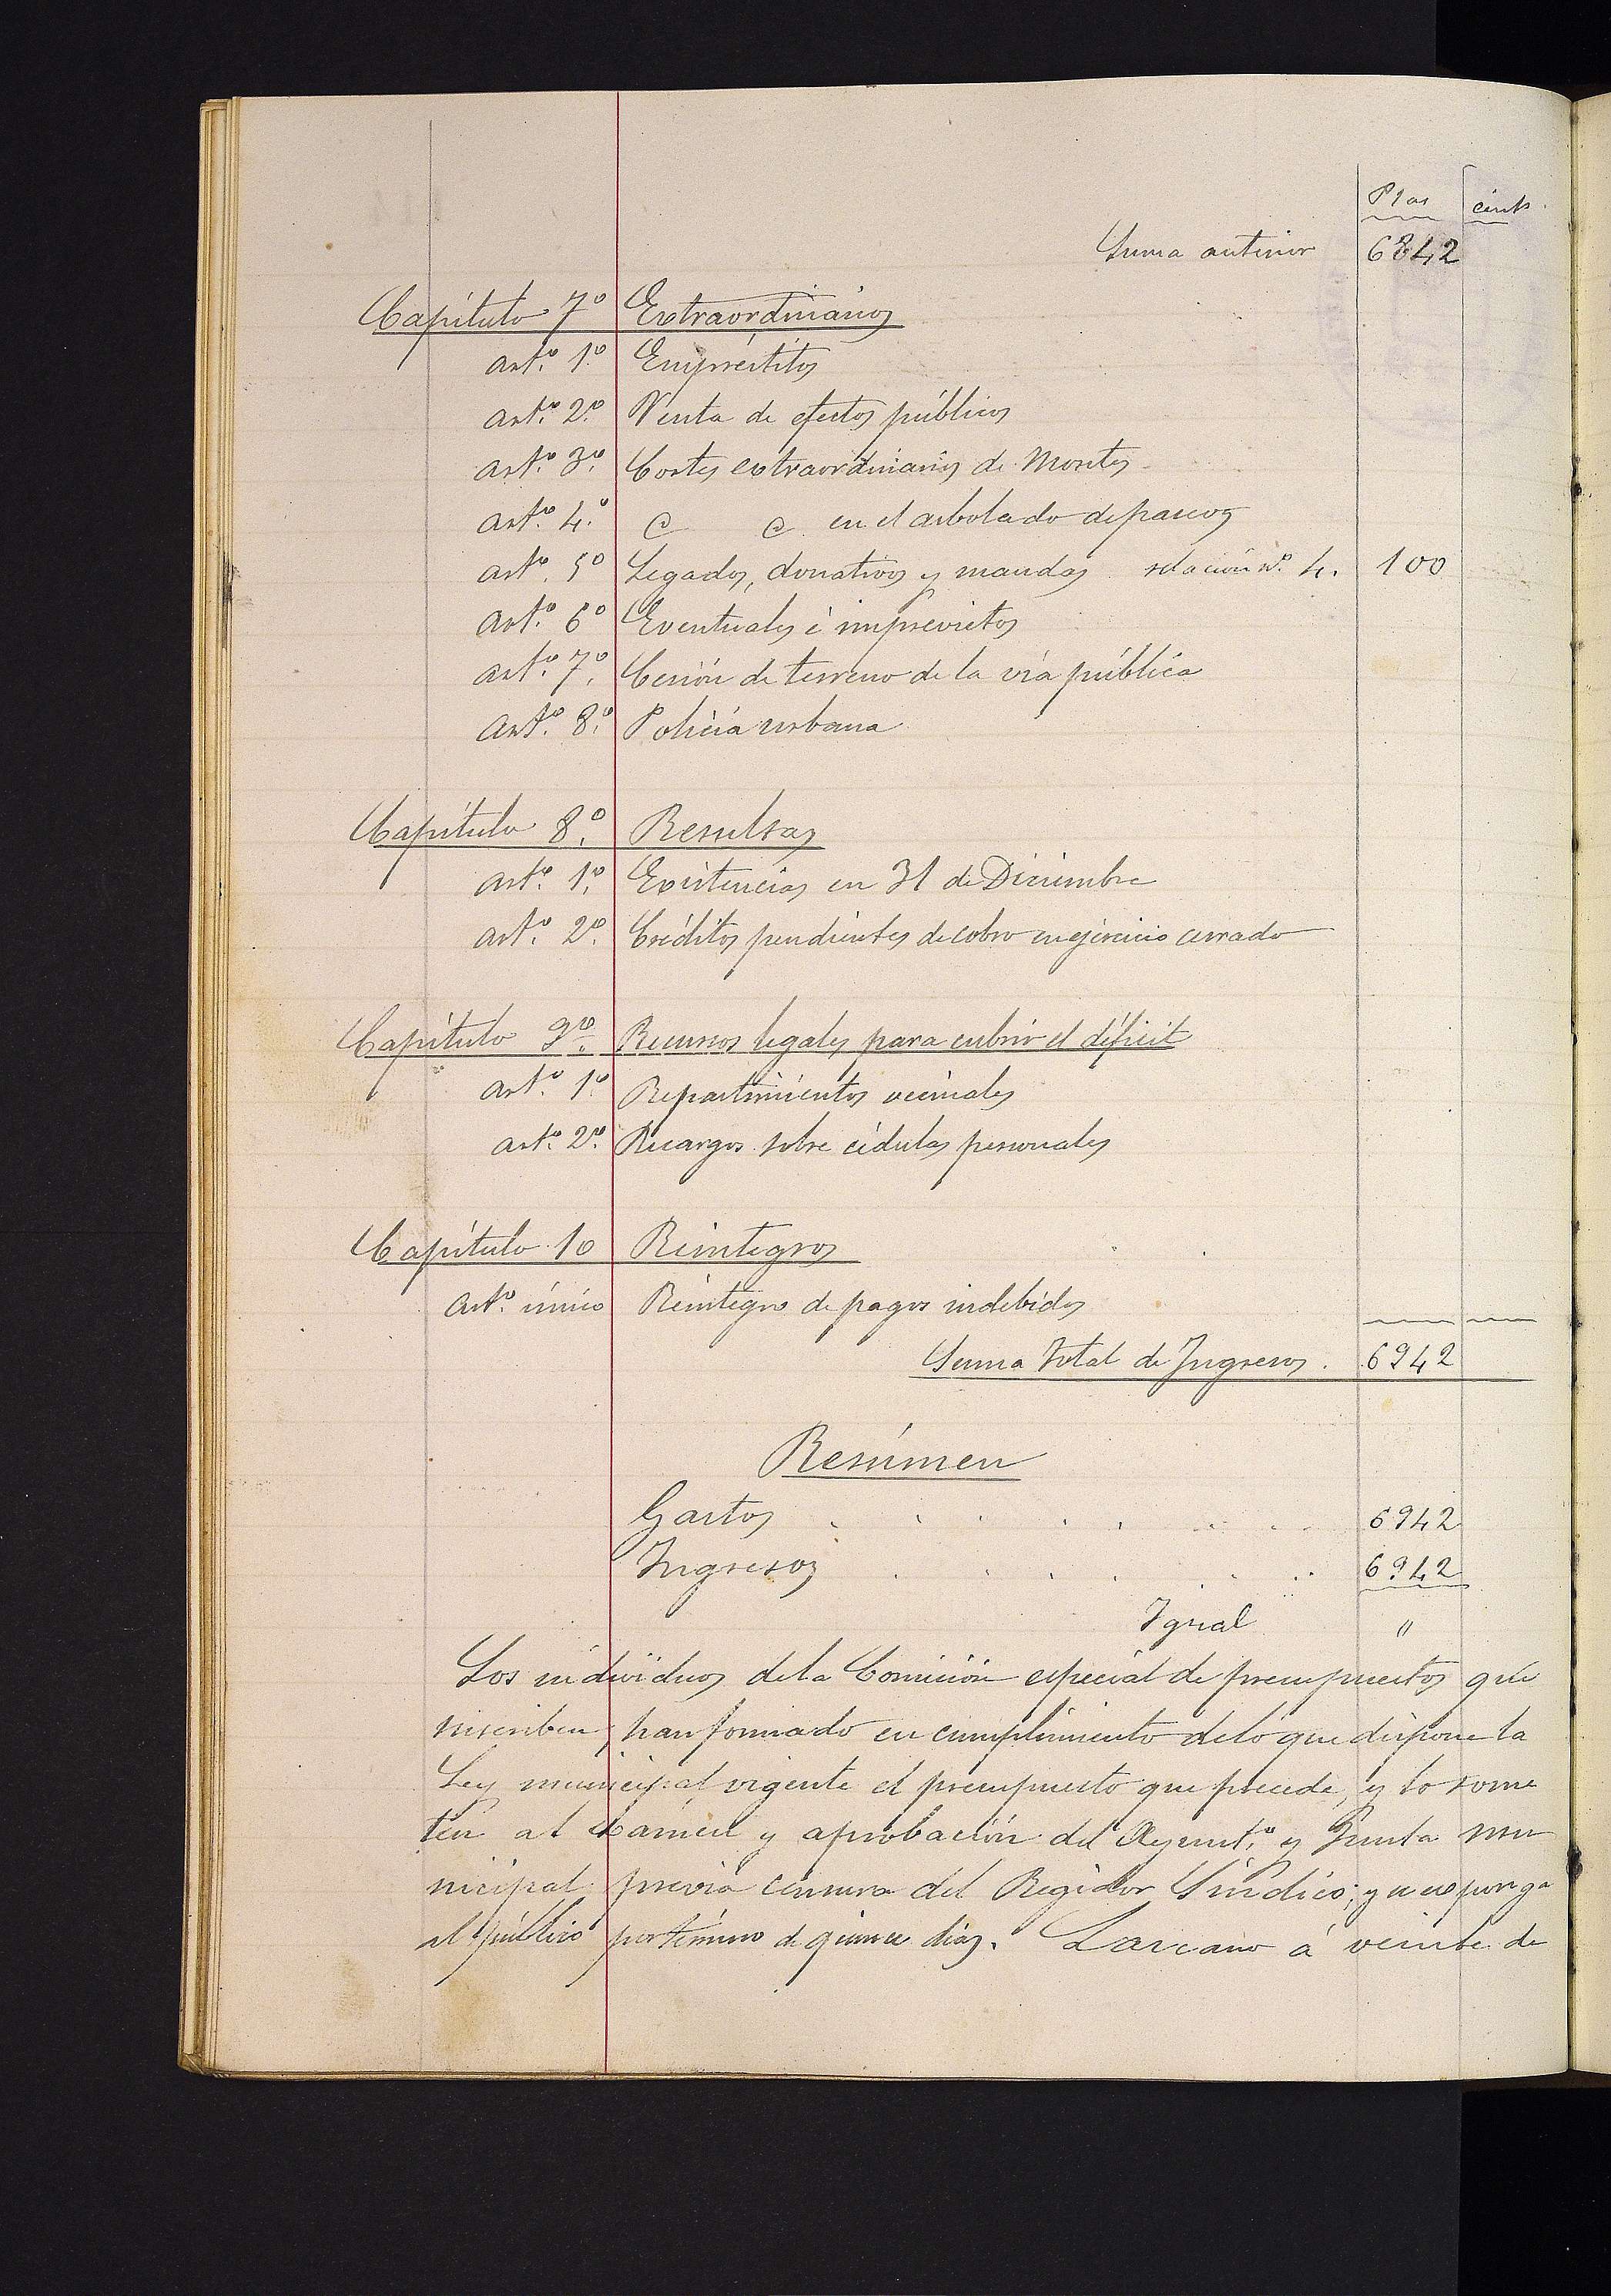 Ptas cents.
Suma anterior 6842
Capítulo 7º Extraordinarios
artº. 1º. Empréstitos
artº. 2º. Venta de efectos públicos
artº. 3º. Cortes extraordinarios de Montes
artº. 4º. @ @ en el arbolado de paseos
artº. 5º Legados, donativos y mandas relación nº. 4. 100
artº. 6º Eventuales é imprevistos
artº. 7º. Cesión de terreno de la vía pública
artº. 8º. Policía urbana
Capítulo 8º. Resultas
artº. 1º. Existencias en 31 de Diciembre
artº. 2º. Créditos pendientes de cobro en ejercicio cerrado
Capítulo 9º. Recursos legales para cubrir el déficit
artº. 1º. Repartimientos vecinales
artº. 2º. Recargos sobre cédulas personales
Capítulo 10 Reintegros
artº. único Reintegro de pagos indebidos
Suma total de Ingresos. 6942
Resúmen
Gastos 6942
Ingresos 6942
Igual "
Los individuos de la Comisión especial de presupuestos que
suscriben, han formado en cumplimiento de lo que dispone la
Ley municipal vigente el presupuesto que precede, y lo some
ten al exámen y aprobación del Ayuntº. y Junta mu
nicipal, previa censura del Regidor Síndico; y se exponga
al público por término de quince días. Lazcano á veinte de